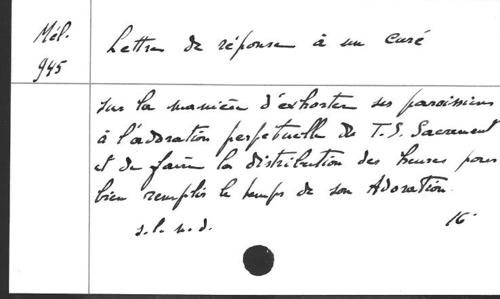 Mél.
945
Lettre de réponse à un curé
sur la manière d'exhorter ses paroissiens
à l'adoration perpetuelle du T. S. Sacrement
et de faire la distribution des heures pour
bien remplir le temps de son Adoration.
s.l.n.d.
16°